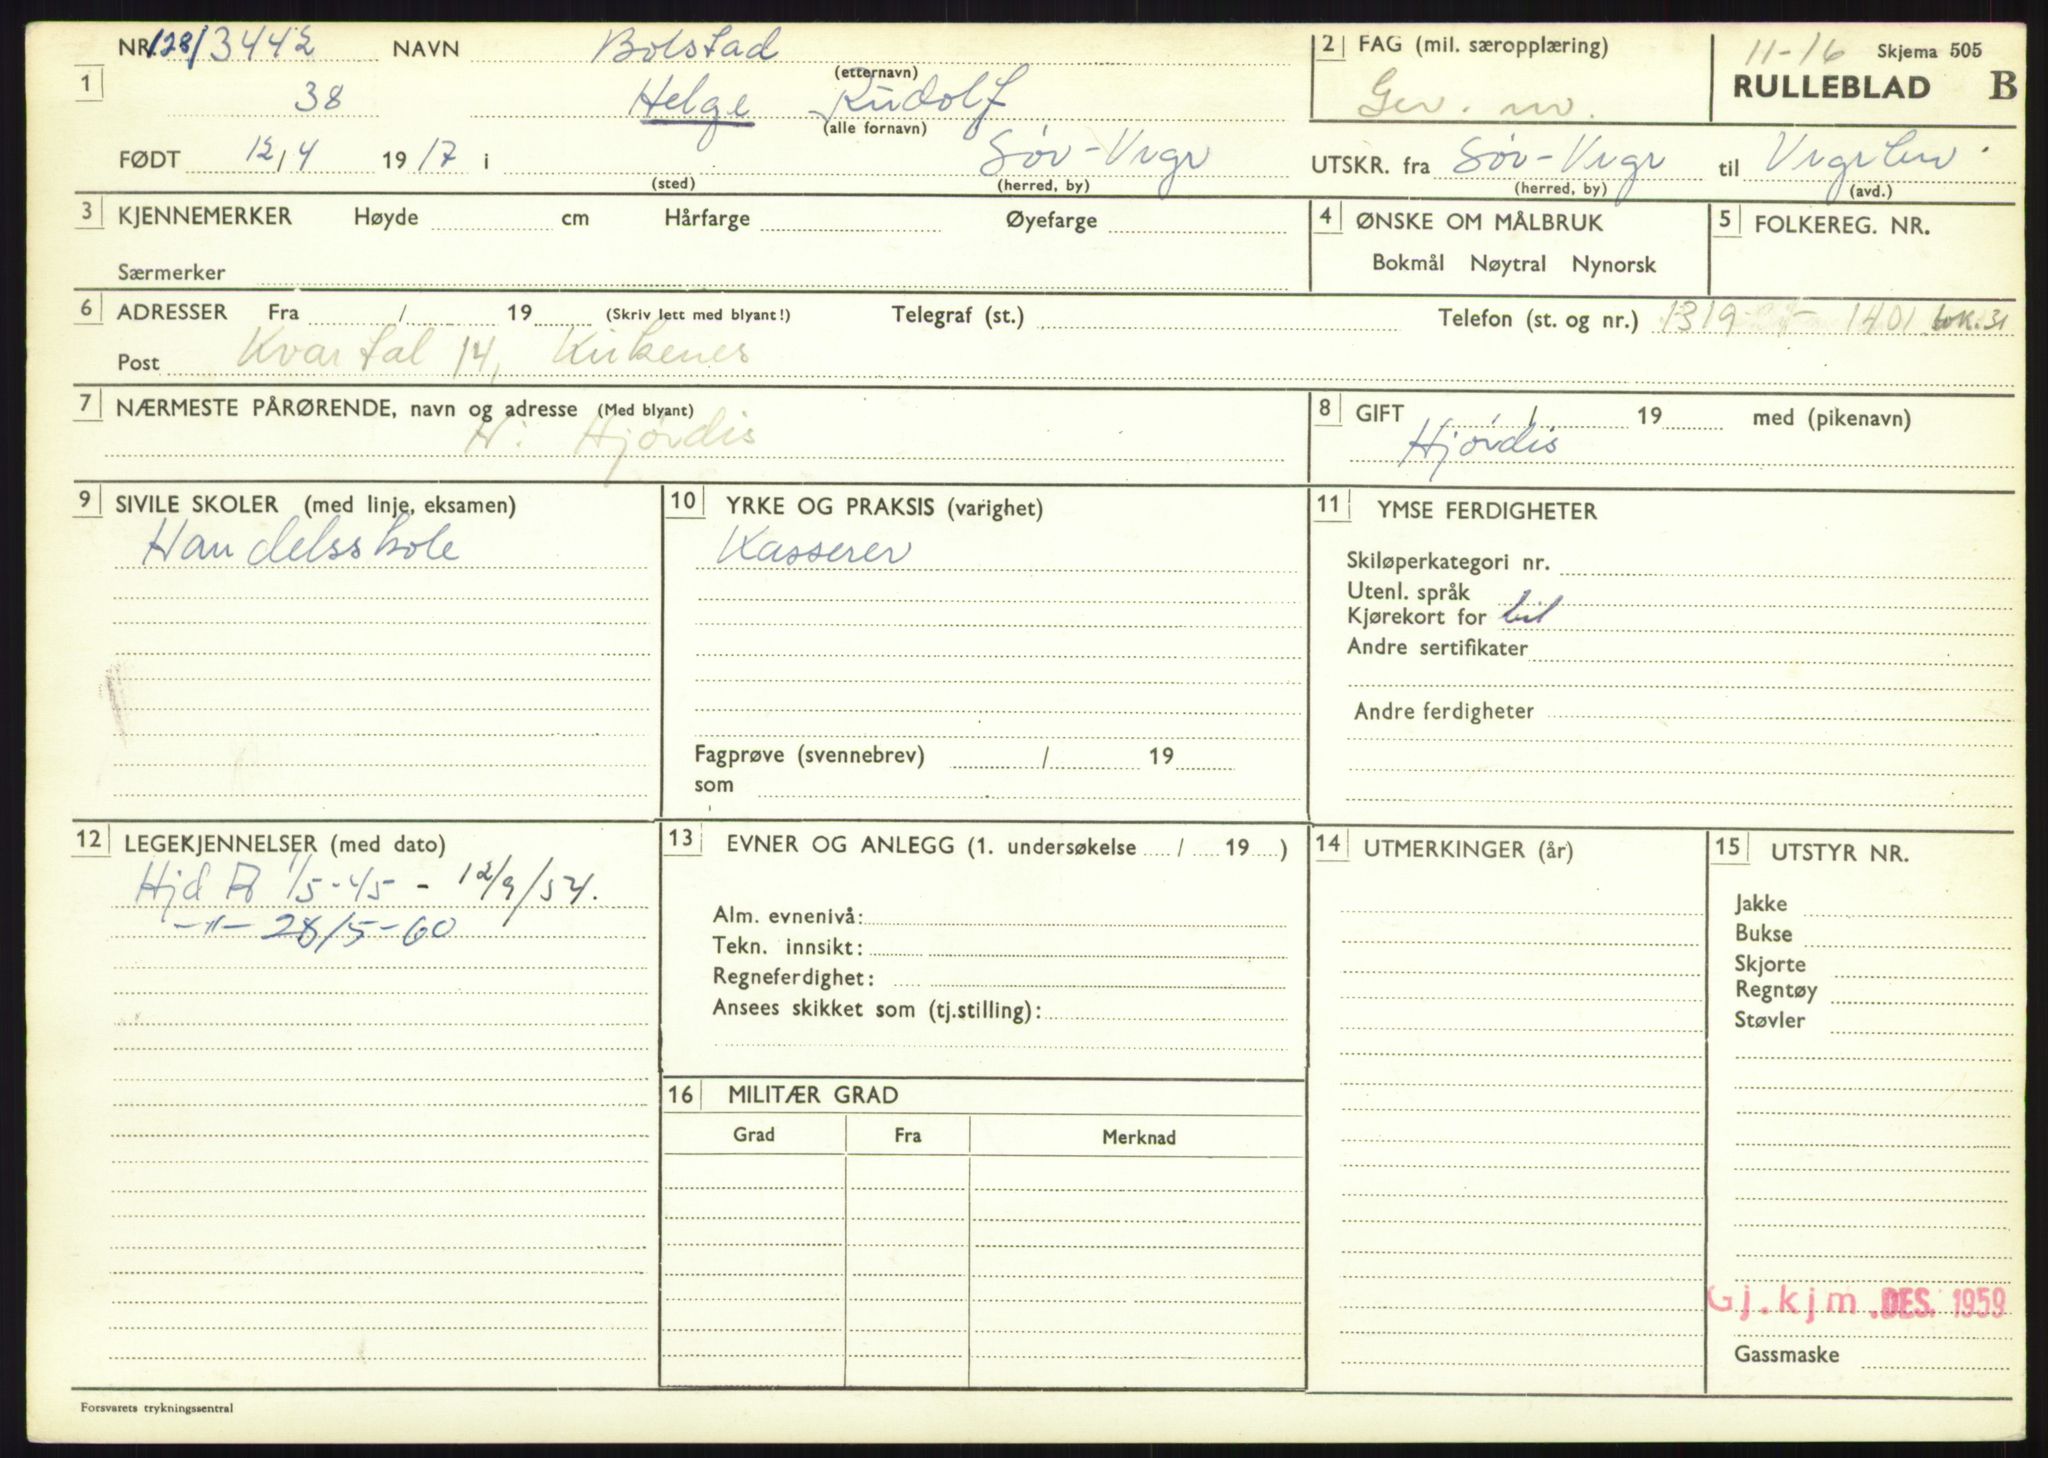 NR 128/3442 NAVN Bolstad 2 FAG (mil. særopplæring) 11-16 Skjema 505
(etternavn) RULLEBLAD B
1 38 Helge Rudolf Gev. m.
(alle fornavn)
FØDT 12/4 1917 i Sør-Vrgr UTSKR. fra Sør-Vrgr til Vrgrhv
(sted) (herred, by) (herred, by) (avd.)
3 KJENNEMERKER Høyde cm Hårfarge Øyefarge 4 ØNSKE OM MÅLBRUK 5 FOLKEREG. NR.
Særmerker Bokmål Nøytral Nynorsk
6 ADRESSER Fra / 19 (Skriv lett med blyant!) Telegraf (st.) Telefon (st. og nr.) 1319 1401 lok. 31
Post Kvartal 14, Kirkenes
7 NÆRMESTE PÅRØRENDE, navn og adresse (Med blyant) 8 GIFT / 19 med (pikenavn)
H: Hjørdis Hjørdis
9 SIVILE SKOLER (med linje, eksamen) 10 YRKE OG PRAKSIS (varighet) 11 YMSE FERDIGHETER
Handelsskole Kasserer
Skiløperkategori nr.
Utenl. språk
Kjørekort for bil
Andre sertifikater
Andre ferdigheter
Fagprøve (svennebrev) / 19
som
12 LEGEKJENNELSER (med dato) 13 EVNER OG ANLEGG (1. undersøkelse / 19 ) 14 UTMERKINGER (år) 15 UTSTYR NR.
Hjd 1/5-45 - 12/9/54.
-"- 28/5-60
Alm. evnenivå:
Tekn. innsikt:
Regneferdighet:
Ansees skikket som (tj.stilling):
Jakke
Bukse
Skjorte
Regntøy
Støvler
16 MILITÆR GRAD
Grad Fra Merknad
Gj.kjm. DES. 1959
Gassmaske
Forsvarets trykningssentral